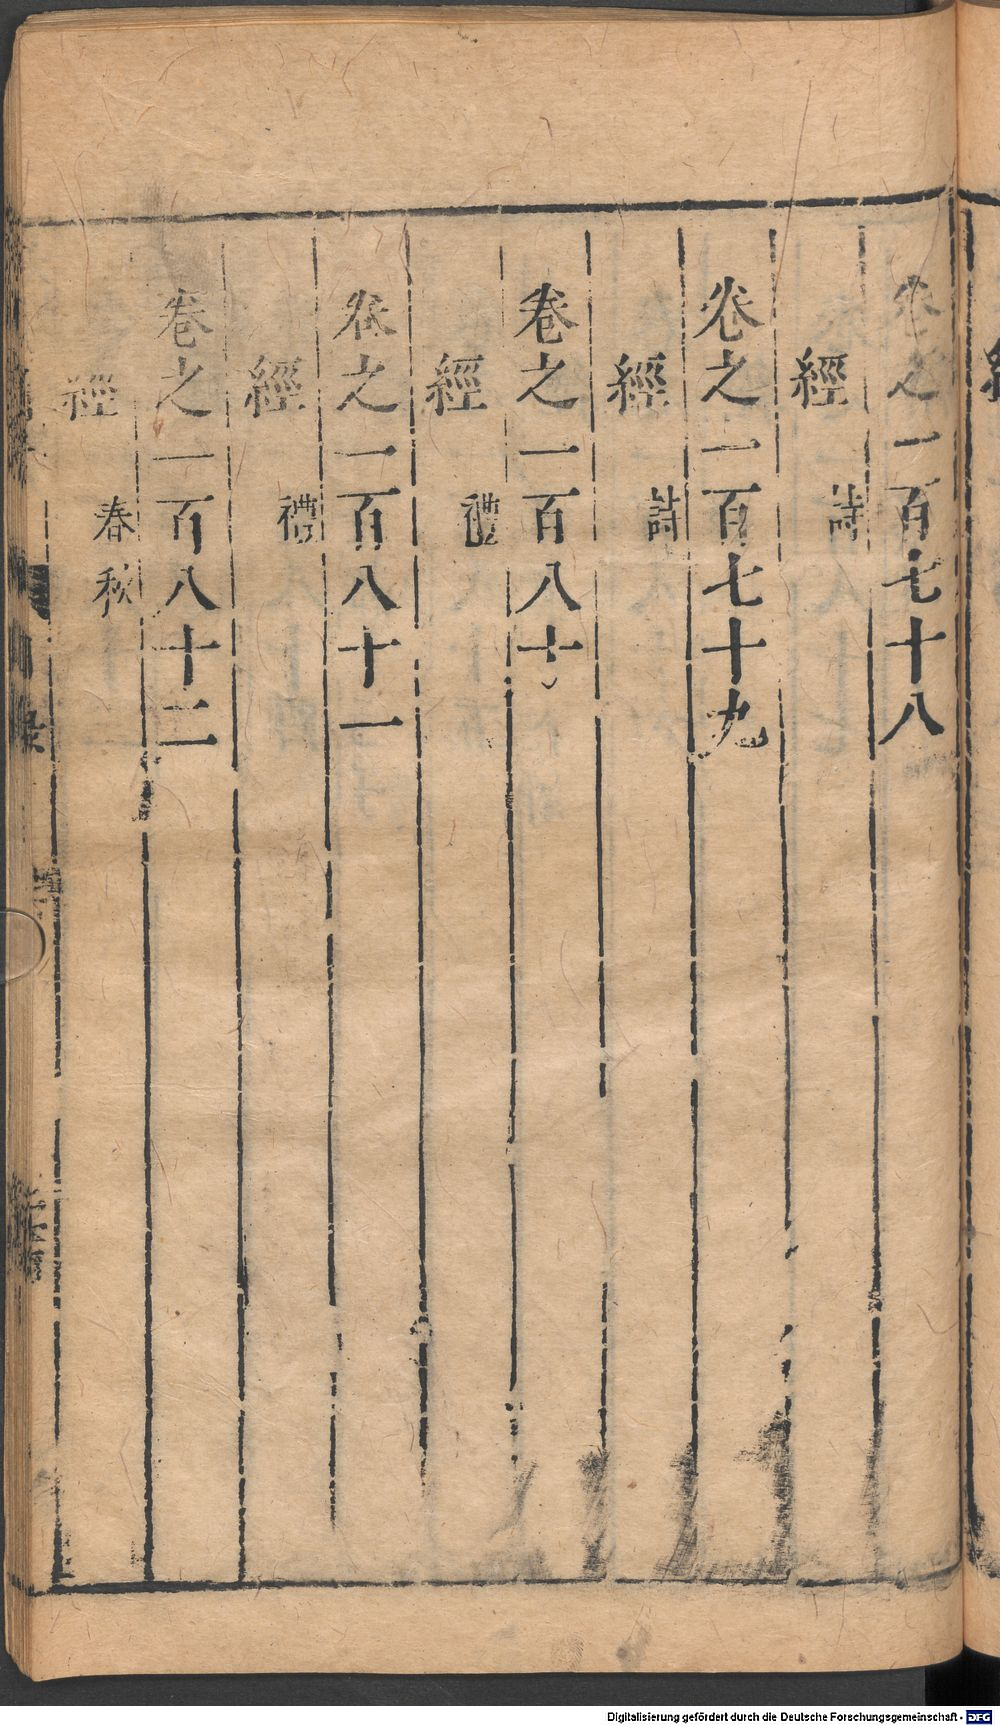 卷之一百七十八
經 詩
卷之一百七十九
經 詩
卷之一百八十
經 禮
卷之一百八十一
經 禮
卷之一百八十二
經 春秋
Digitalisierung gefördert durch die Deutsche Forschungsgemeinschaft - DFG